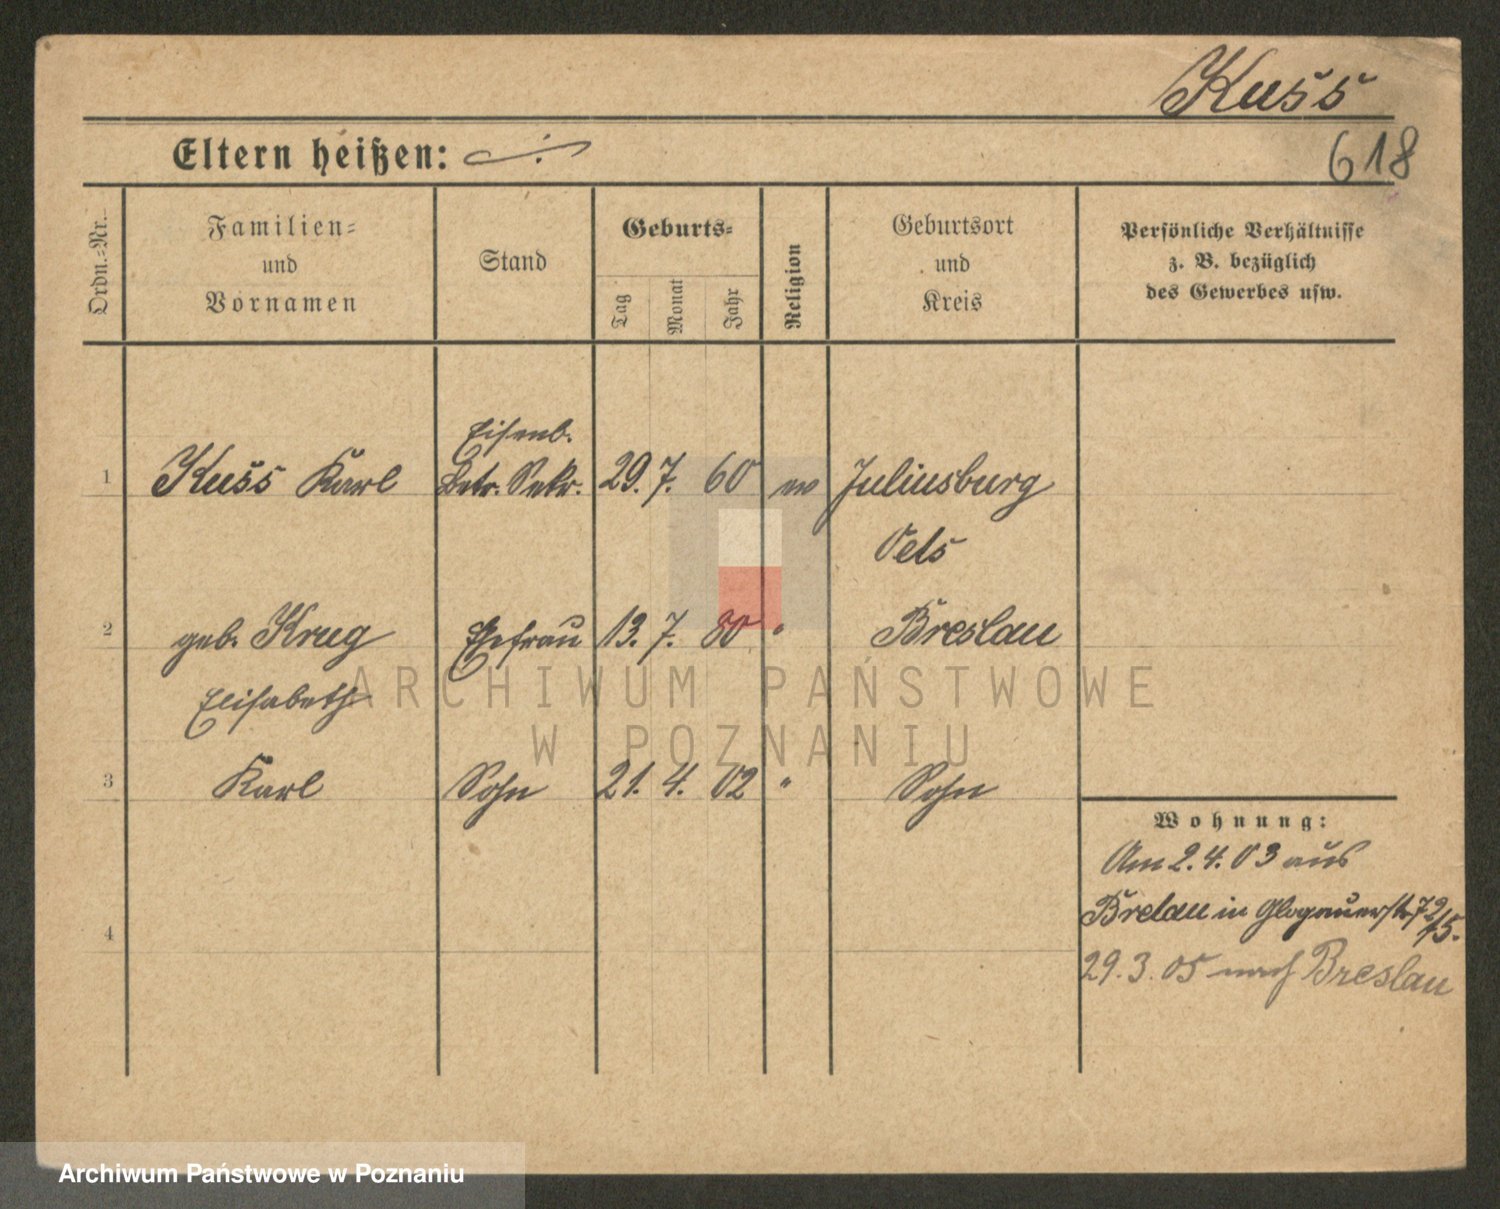 Kuss
618
Eltern heißen: ·/.
Ordn.-Nr.
Familien-
und
Vornamen
Stand
Geburts-
Tag
Monat
Jahr
Religion
Geburtsort
und
Kreis
Persönliche Verhältnisse
z. B. bezüglich
des Gewerbes usw.
Eisenb.
1 Kuss Karl Betr. Sekr. 29. 7. 60 ev Juliusburg
Oels
2 geb. Krug Ehefrau 13. 7. 80 " Breslau
Elisabeth
3 Karl Sohn 21. 4. 02 " Sohn
Wohnung:
Am 2.4.03 aus
Breslau in Glogauerstr 72/15.
4
29.3.05 nach Breslau
ARCHIWUM PAŃSTWOWE
W POZNANIU
Archiwum Państwowe w Poznaniu